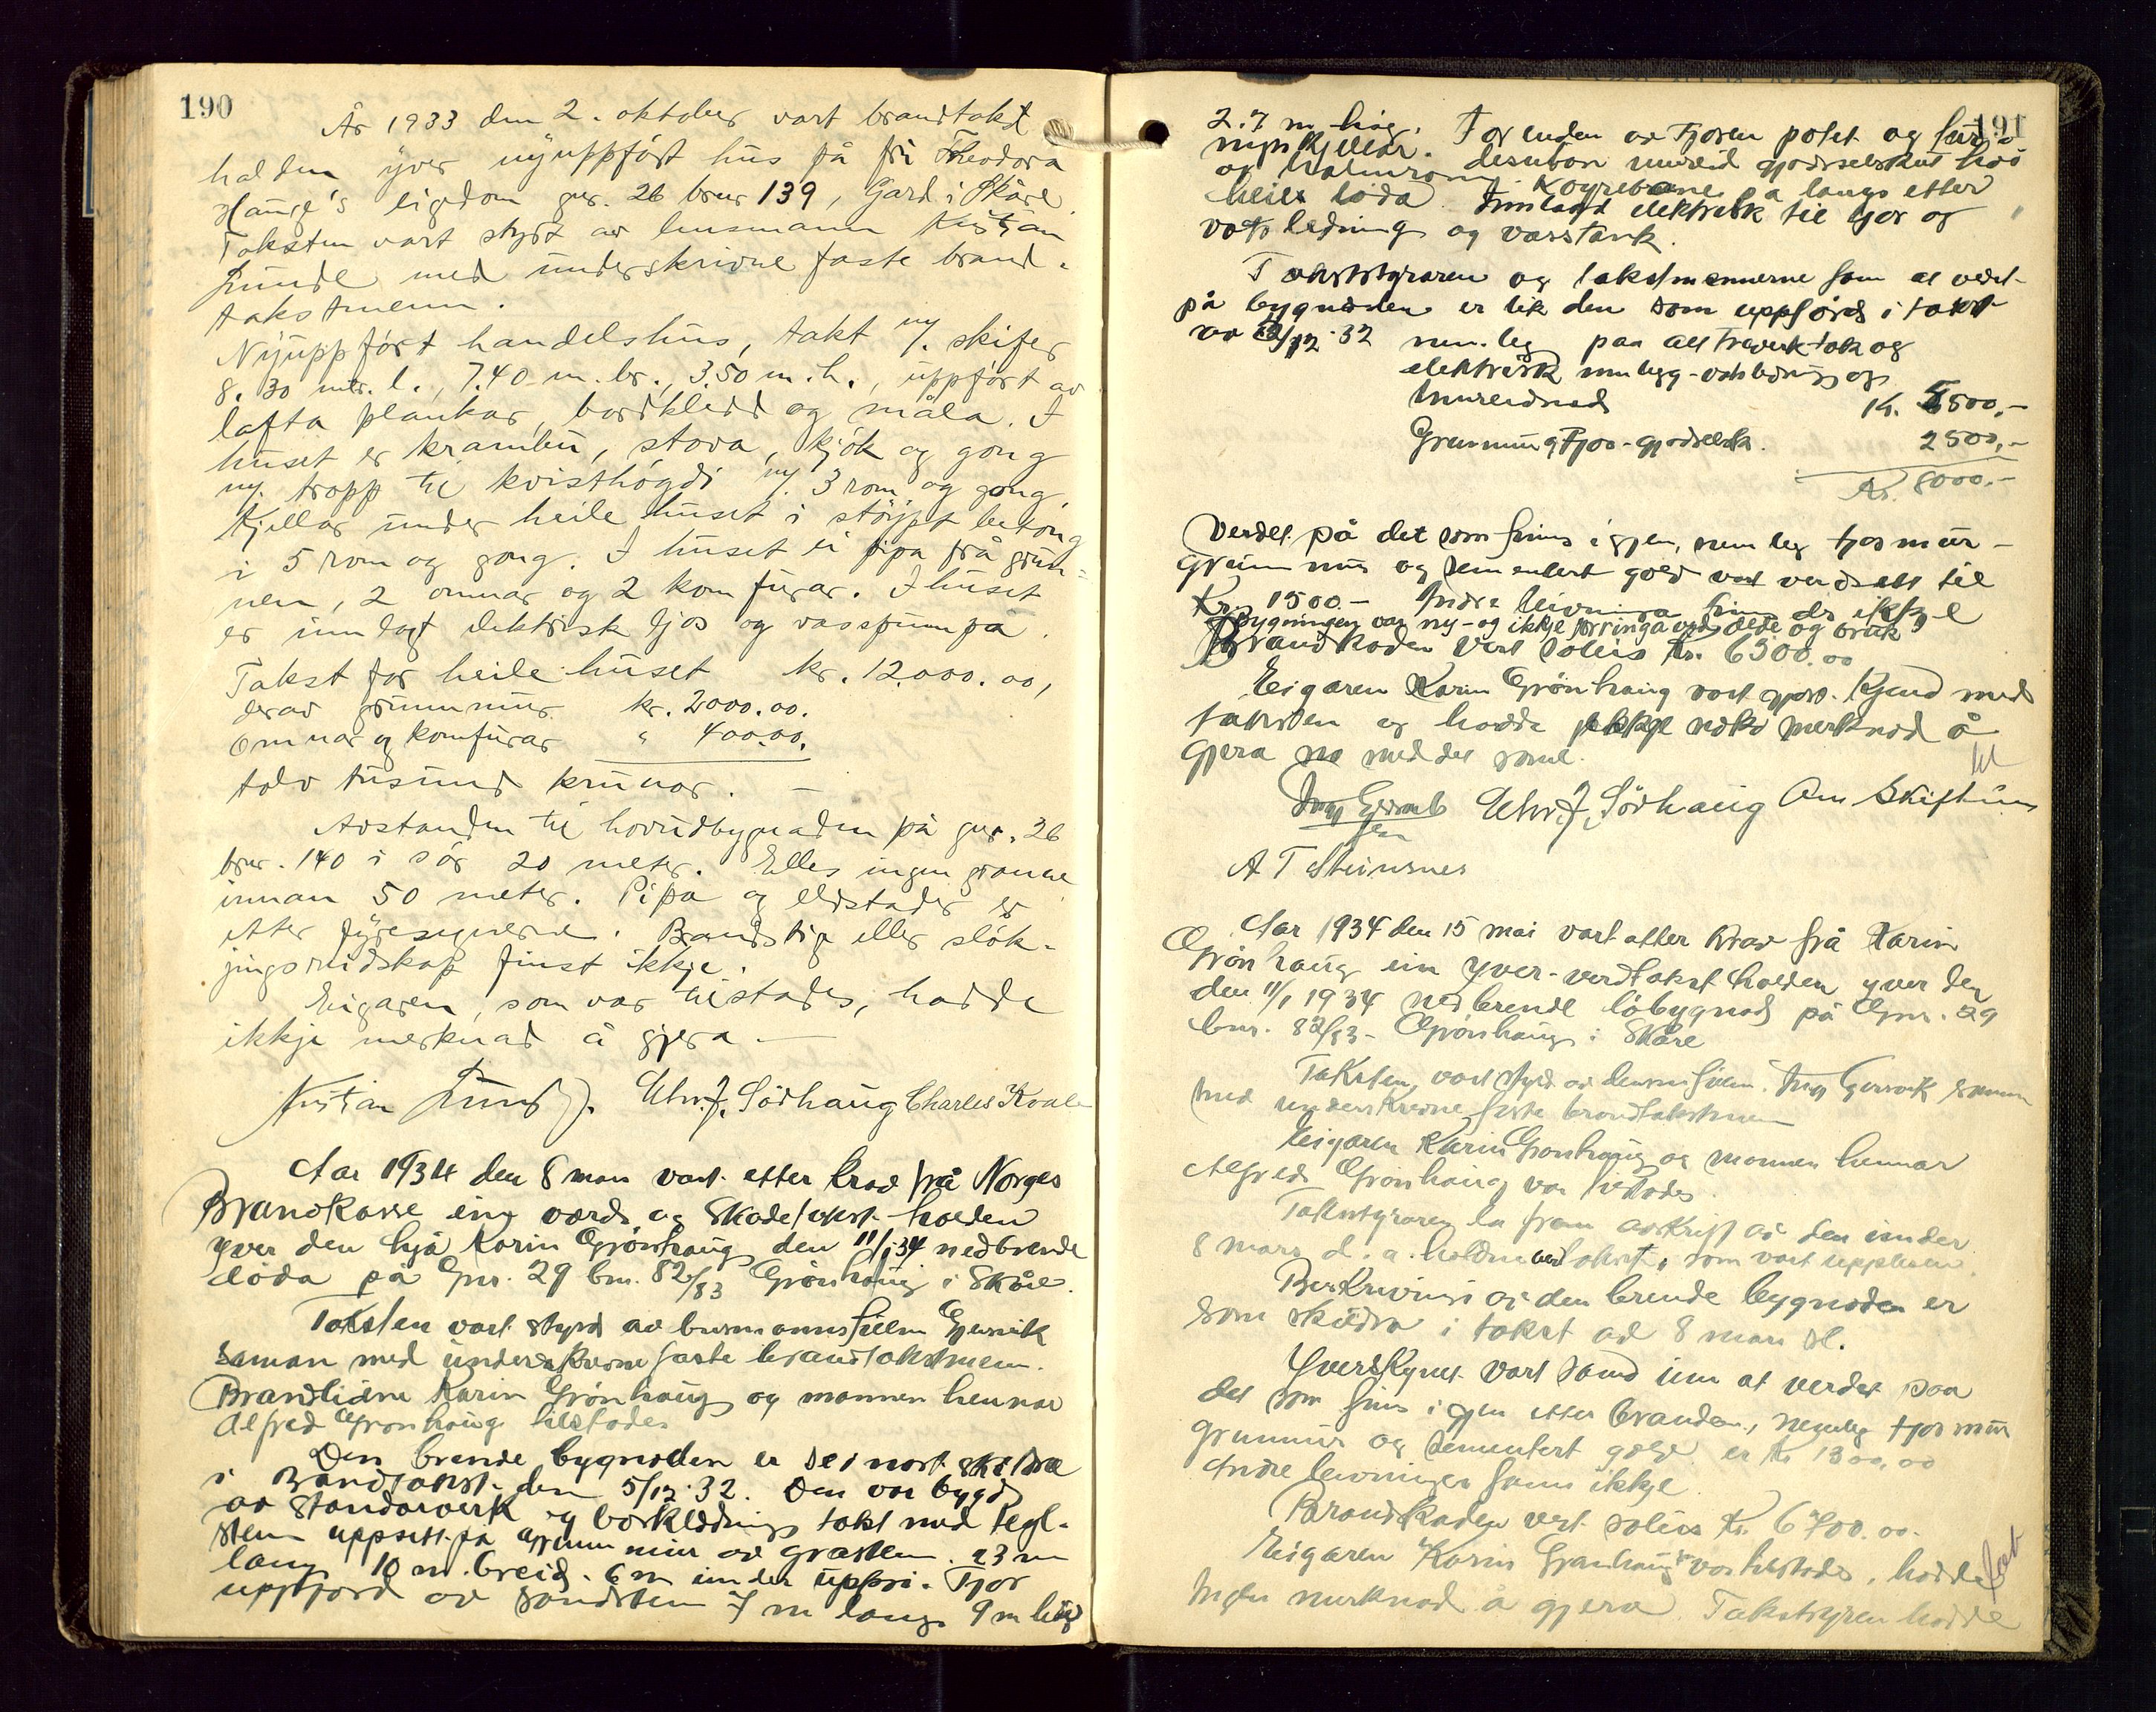 190
År 1933 den 2. oktober vart brandtakst
halden yver nyuppført hus på frü Theodora
Hauge's eigedom gnr. 26 brnr 139, Gard i Skåre.
Taksten vart styrt av lensmann Kristian
Lunde med underskrivne faste brand-
takstmenn.
Nyuppført handelshus, takt m/. skifer
8.30 mtr. l., 7.40 m. br., 3.50 m. h., uppført av
lafta plankar, bordkledd og måla. I
huset er krambu, stova, kjök og gong
m/. tropp til kvisthögdi m/. 3 rom og gong.
Kjellar under heile huset i støypt betong
i 5 rom og gong. I huset ei pipa frå grün-
nen, 2 omnar og 2 komfürar. I huset
er innlagt elektrisk ljos og vasspumpa.
Takst for heile huset kr. 12.000.00,
derav grunnmur kr. 2000.00.
Omnar og komfurar " 400.00.
tolv tusund krunor. —
Avstanden til hovudbygnaden på gnr. 26
brnr. 140 i sør 20 meter. Elles ingen granne
innan 50 meter. Pipa og eldstader er
etter fyresegnerne. Brandstige eller sløk-
jingsreidskap finst ikkje.
Eigaren, som var tilstades, hadde
ikkje merknad å gjera —
Kristian Lunde. Chr. J. Sørhaug Charles Kvale
Aar 1934 den 8 mars vart etter krav frå Norges
Brandkasse ein verds og Skadetakst holden
yver den hjå Karin Grönhaug den 11/1 34 nedbrende
löda på Gnr. 29 bnr. 82/83 Grönhaug i Skåre.
Taksten vart styrd av lensmannsfullm Gjersvik
saman med underskrevne faste brandtakstmenn.
Brandlidne Karin Grönhaug og mannen hennar
Alfred Grönhaug tilstades
Den brende bygnaden er seinast skildra
i Brandtakst den 5/12 32. Den var bygd
av Standarverk og bordklædning takt med tegl-
stein uppsett på grunnmur av graastein. 23 m
lang 10 m. breid. 6 m under uppsi. Fjos
uppførd av sandstein 7 m lang 9 m breid
191
2.7 m. høg. For enden av Fjosen potet og tur-
nips kjellar. desutan murt gjødselskut hø
og halmrom. Køyrebane på langs etter
heile løda. Innlagt elektrisk til ljos og
vass ledning og vasstank.
Takststyraren og takstmennerne fann at verdet
på bygnaden er lik den som uppførds i takst
av 5/12 32 nemleg paa alt treverk tak og
elektrisk innlegg - vatsledning og
Innreidnad Kr. 5500,-
Grunnmur og Fjos - gjødselsk. 2500,-
Kr. 8000.-
Verdet på det som finns igjen, nemleg fjos mur -
grunnmur og sementert golv vart verdsett til
Kr. 1500 - Andre leivninga finns dr ikkje
Bygningen var ny - og ikkje forringa ved elde og bruk
Brandskaden vert soleis Kr. 6500.00
Eigaren Karin Grönhaug vart gjort kjend med
taksten og hadde ikkje noko merknad å
gjera no med det same.
Chr. J. Sørhaug Om Skiftun
A T Steinsnes
Aar 1934 den 15 mai vart etter krav frå Karin
Grönhaug ein yver-verdtakst halden yver den
den 11/1 1934 nedbrende løbygnad på Gnr. 29
bnr. 82/83 - Grönhaug i Skåre
Taksten vart styrd av lensm.fullm. Gjersvik saman
med underskrevne faste brandtakstmenn
Eigaren Karin Grönhaug og mannen hennar
Alfred Grönhaug var tilstades.
Takststyraren la fram avskrift av den under
8 mars d. a. holdne verdtakst, som vart upplesen.
Beskrivinga av den brende bygnaden er
som skildra i takst av 8 mars sl.
Yverskynet vart samd um at verdet paa
det som finns igjen etter branden, nemleg fjosmur
grunnmur og sementert golv er Kr 1300.00
Andre levninger fanns ikkje.
Brandskaden vert soleis Kr. 6700.00.
Eigaren Karin Grønhaug var tilstades, hadde
Ingen merknad å gjera. Takststyraren hadde